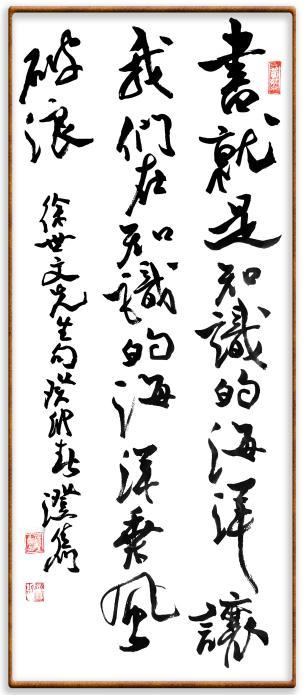 書就是知識的海洋讓
我們在知識的海洋乘風
破浪
徐世文先生句癸卯春澄